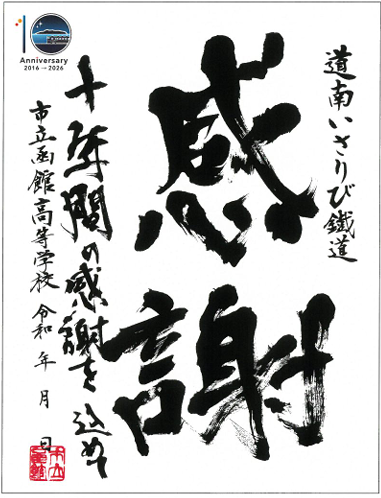 10
Anniversary
2016→2026
道南いさりび鐵道
感謝
十年間の感謝を込めて
市立函館高等学校 令和 年 月 日